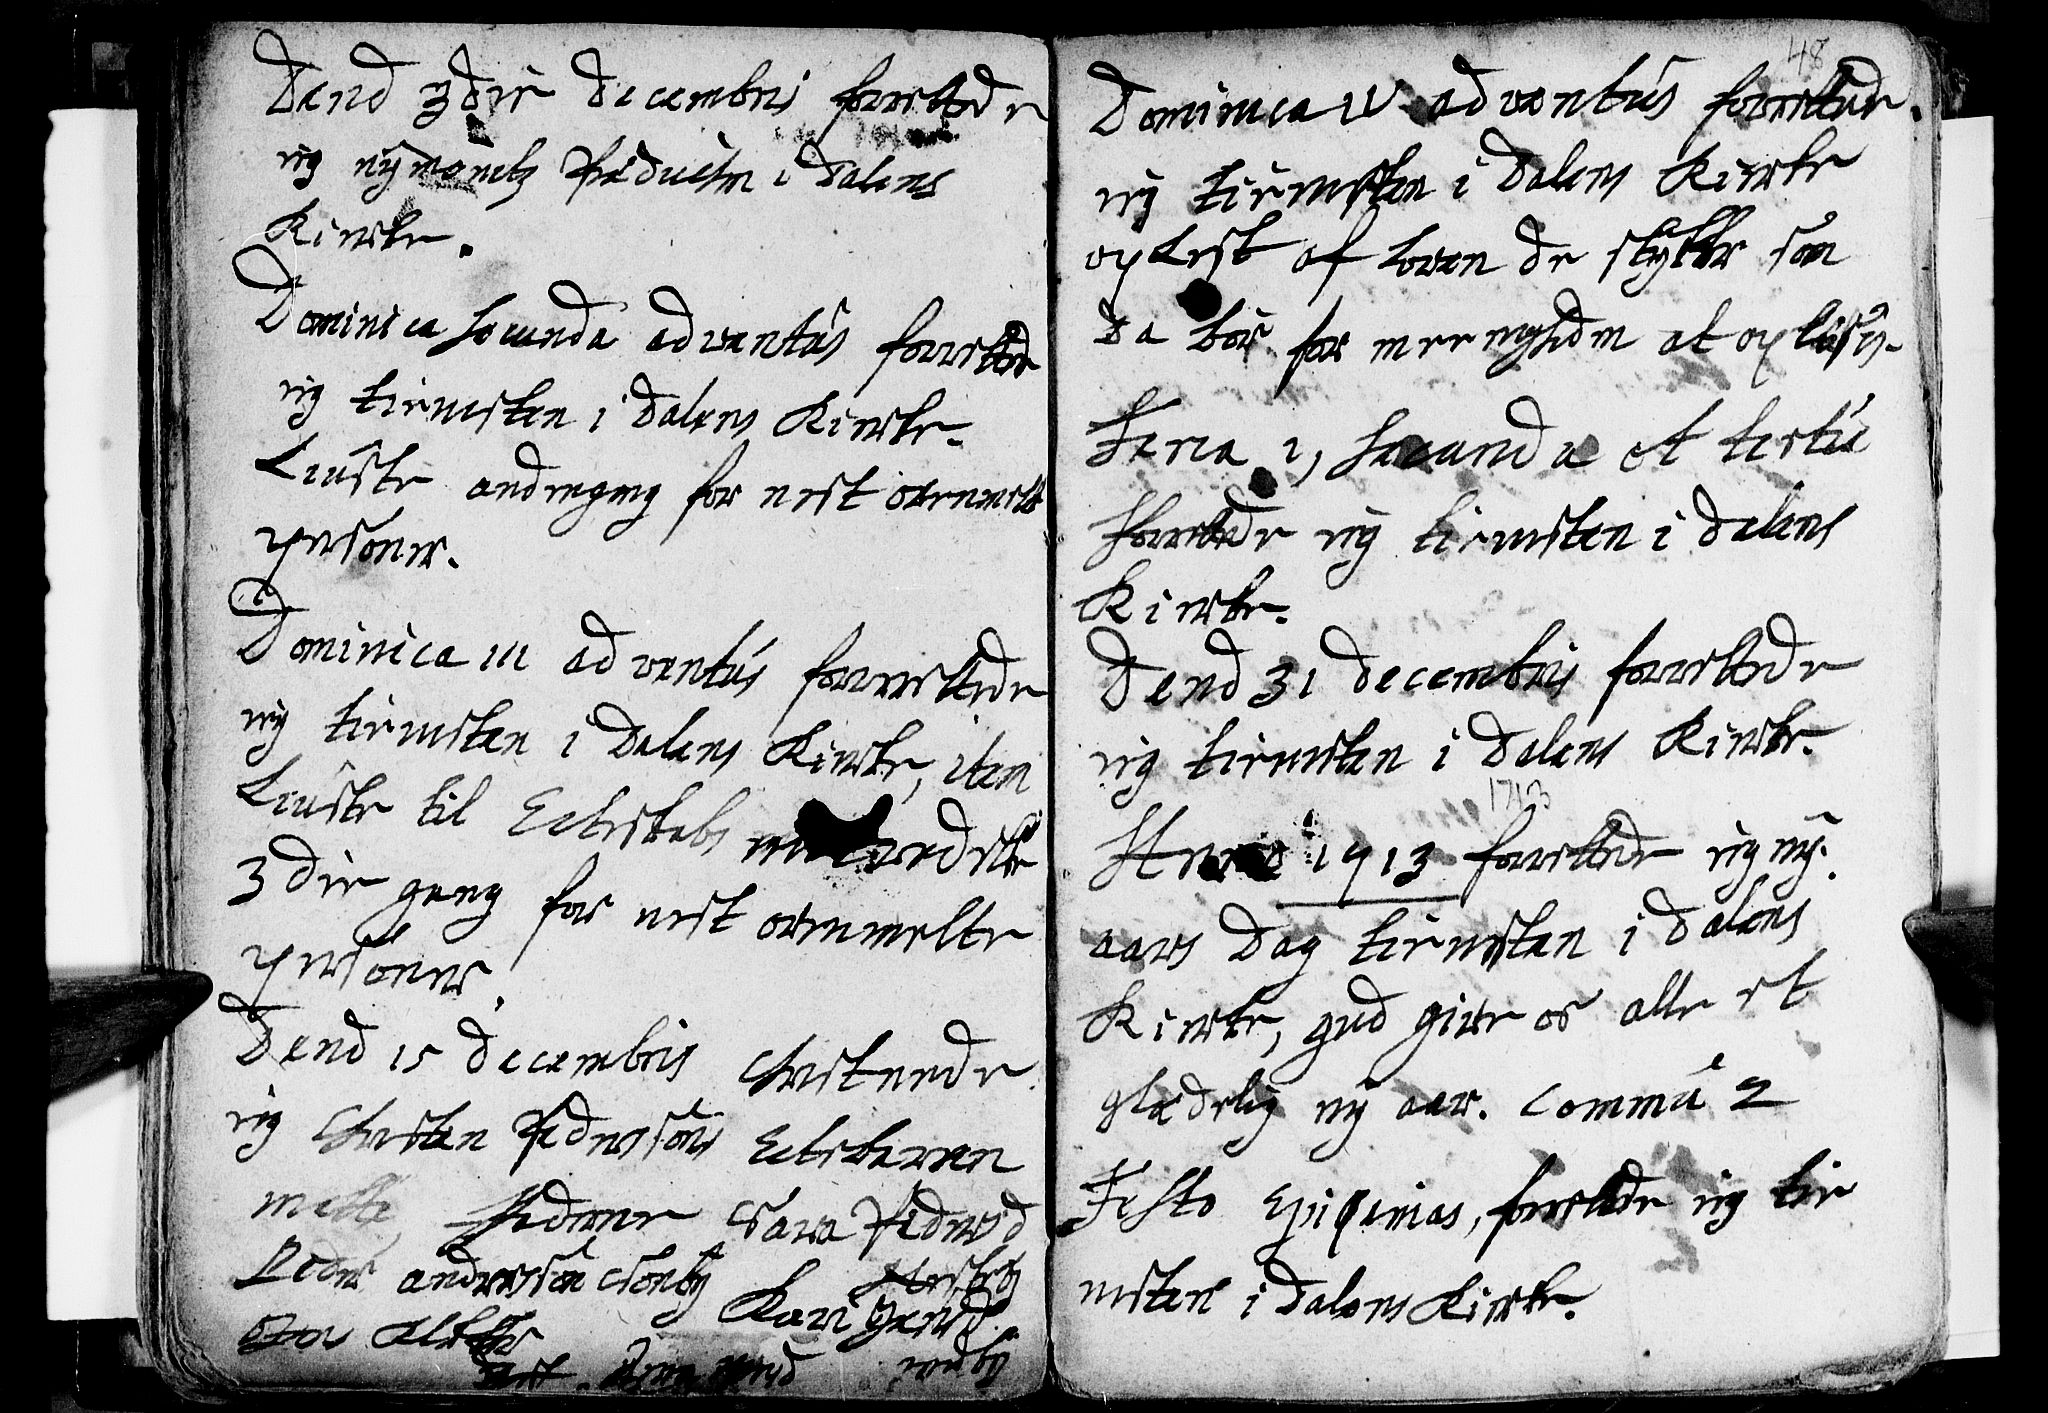 Dend 3die decembris forrettede
ieg nÿmonets Prædichen i Dalens
Kircke.
Dominica secunda adventus forrettede
ieg tienesten i Dalens Kircke.
Liuste andengang for nest ovenmelte
personer.
Dominica III adventus forrettede
ieg tienesten i Dalens Kircke, item
Liuste til Echteskabs
3die gang for nest ovenmelte
personer.
Dend 15 decembris christnede
ieg Christen Pedersøns Echtebaren
Mette, Faderne Sara Pedersd
Peder andersøn
Kari
48
Dominica IV adventus forrettede
ieg tienesten i Dalens Kircke
oplest af loven de stÿkker som
da bør for meenigheden at oplæsis.
Feria 1, secunda et tertia
forrettede ieg tienesten i Dalens
Kircke.
Dend 31 decembris forrettede
ieg tienesten i Dalens Kircke.
1713
Anno 1713 forrettede ieg nÿ
aars Dag tienesten i Dalens
Kircke, gud give os alle et
glædelig nÿ aar. Commu 2
Festo Epiphanias, forrettede ieg tie
nesten i Dalens Kircke.